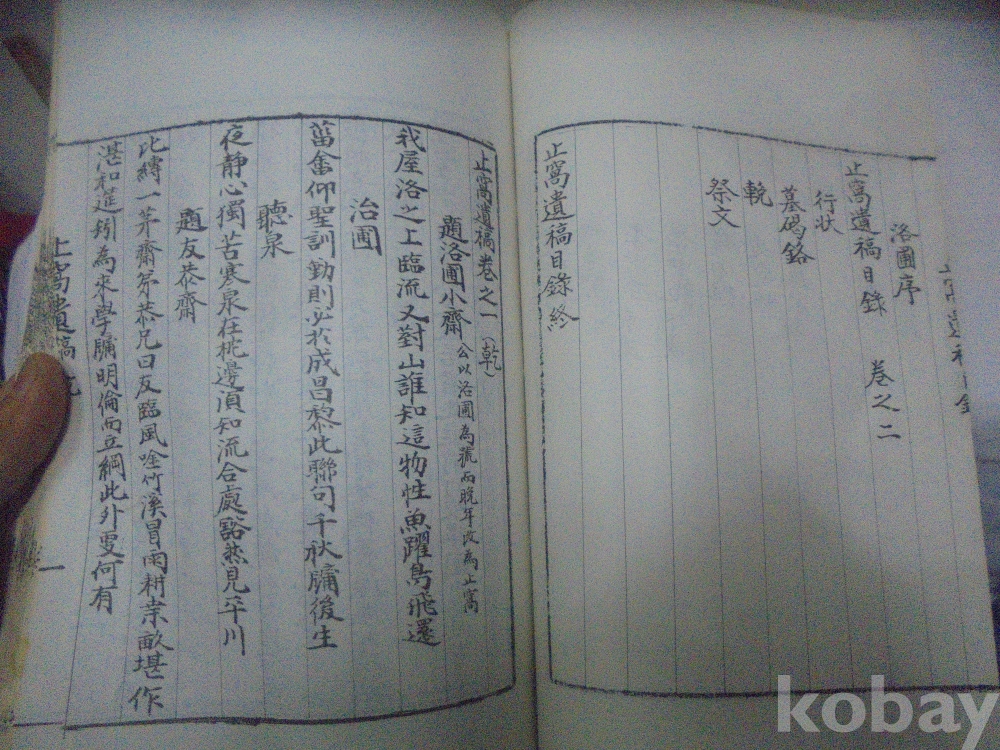 洛圃序
止窩遺稿目錄 卷之二
行狀
墓碣銘
輓
祭文
止窩遺稿目錄終
止窩遺稿卷之一(乾)
題洛圃小齋 公以洛圃為號而晚年改為止窩
我屋洛之上臨流又對山誰知這物性魚躍鳥飛還
治圃
菑畬仰聖訓勤則必於成昌黎此聯句千秋牖後生
聽泉
夜靜心獨苦寒泉在枕邊須知流合處豁然見平川
題友恭齋
比縳一茅齋弟恭兄曰友臨風唫竹溪冒雨耕東畝堪作
湛和筵矧為來學牖明倫而立綱此外更何有
止窩遺稿
一
kobay